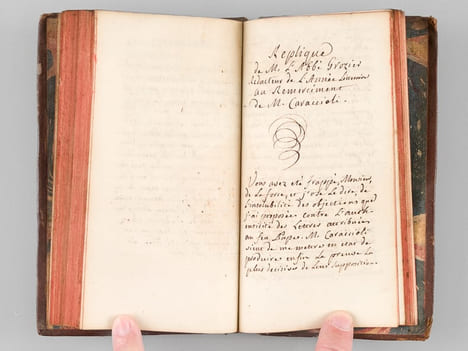 Replique
de M. L'Abbé Grozier
Rédacteur de L'Année Littéraire
au Remerciment
de M. Caraccioli.
Vous avez été frappé, Monsieur,
de la force, et j'ose le dire, de
l'insolubilité des objections que
j'ai proposées contre L'auth-
enticité des Lettres attribuées
au feu Pape. M. Caraccioli
vient de me mettre en état de
produire enfin la preuve la
plus décisive de leur supposition.